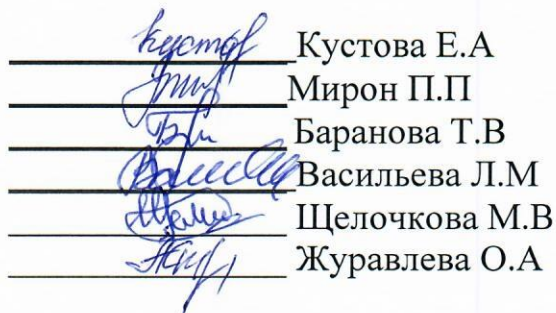 Кустова Е.А
Мирон П.П
Баранова Т.В
Васильева Л.М
Щелочкова М.В
Журавлева О.А